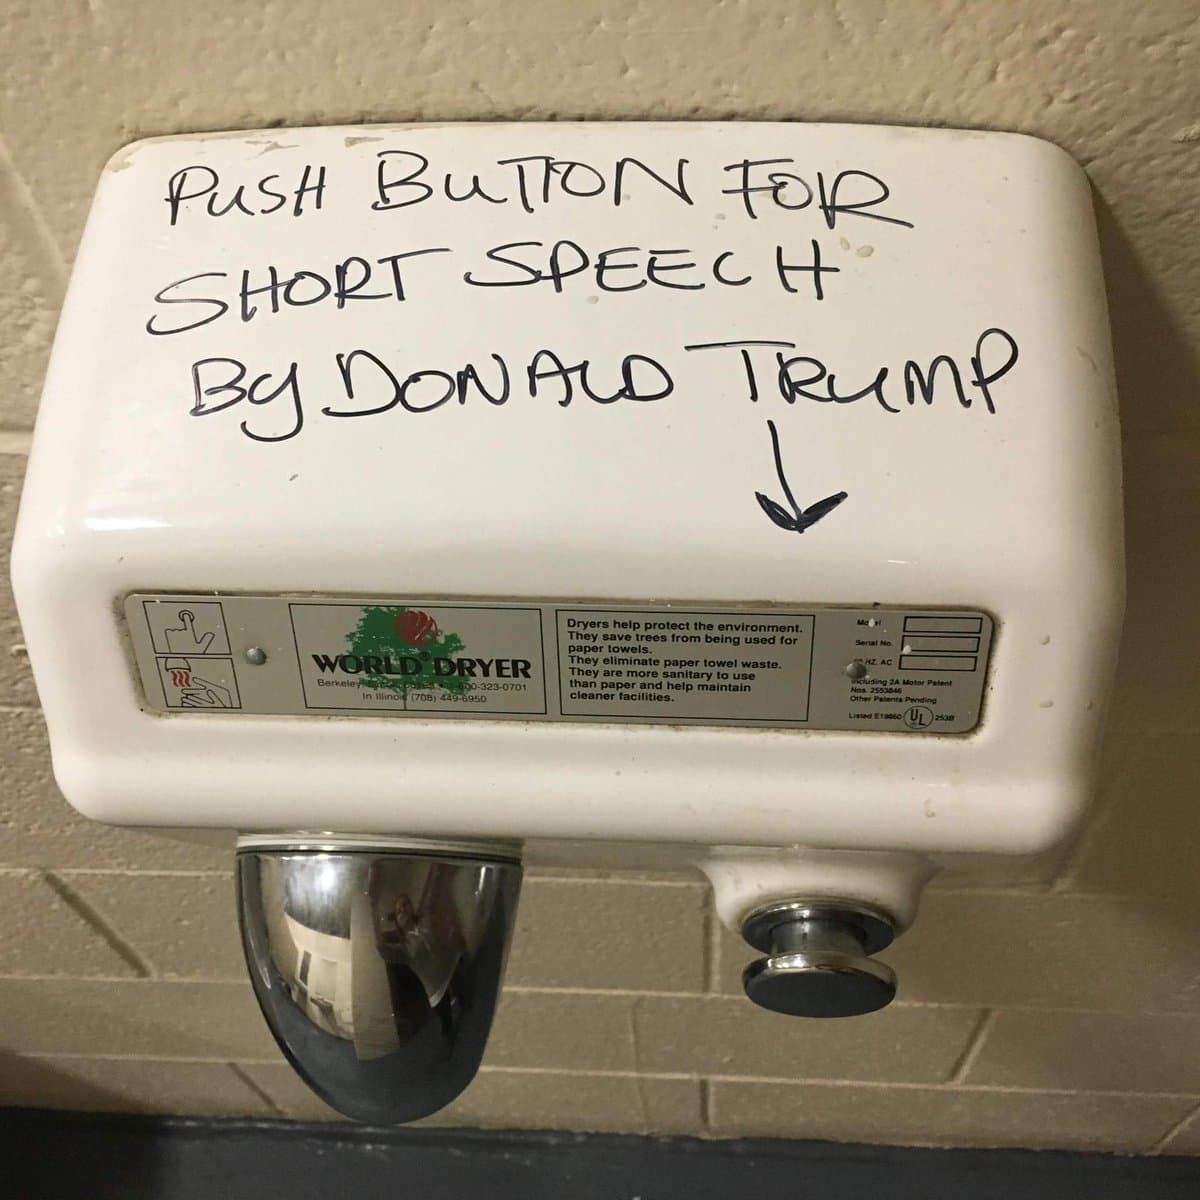 PUSH BUTTON FOR
SHORT SPEECH
BY DONALD TRUMP
WORLD® DRYER
Berkeley
800-323-0701
In Illinois (708) 449-6950
Dryers help protect the environment.
They save trees from being used for
paper towels.
They eliminate paper towel waste.
They are more sanitary to use
than paper and help maintain
cleaner facilities.
Model
Serial No.
HZ. AC
Including 2A Motor Patent
Nos. 2553846
Other Patents Pending
Listed E19860 UL 253B